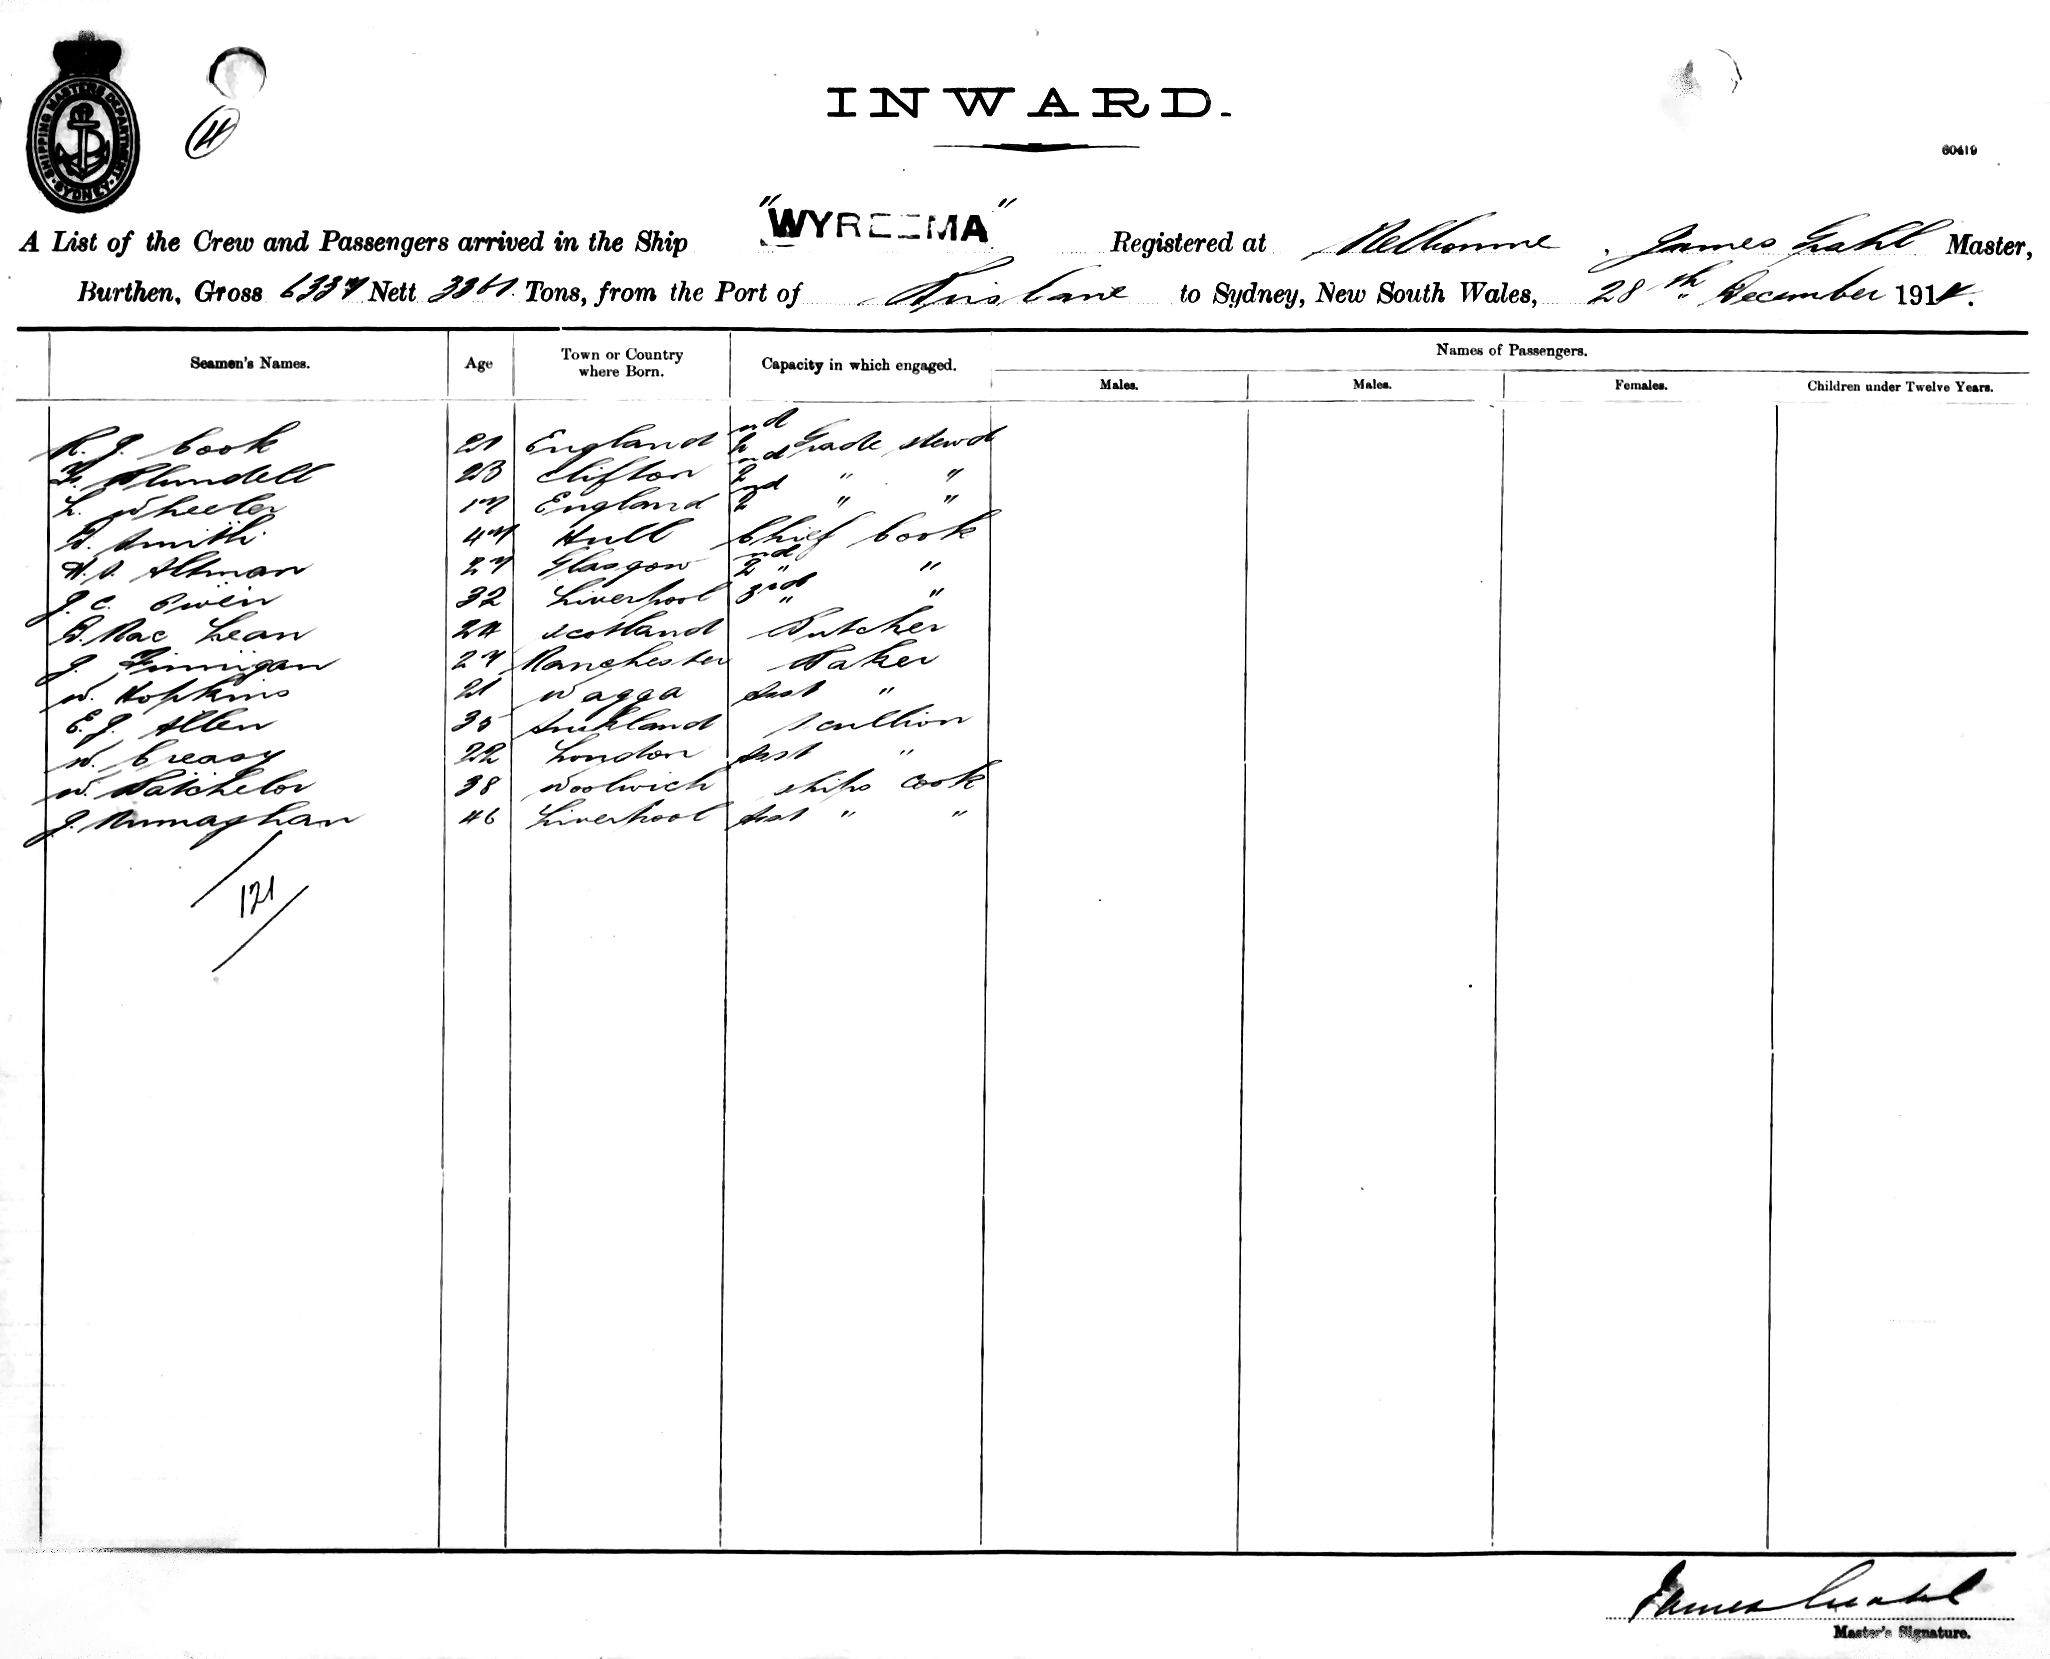 SHIPPING MASTERS DEPARTMENT
SYDNEY
4
INWARD.
60419
A List of the Crew and Passengers arrived in the Ship "WYREEMA" Registered at Melbourne, James Grahl Master,
Burthen, Gross 6337 Nett 3361 Tons, from the Port of Brisbane to Sydney, New South Wales, 28th December 1914.
Seamen's Names. Age Town or Country where Born. Capacity in which engaged. Names of Passengers.
Males. Males. Females. Children under Twelve Years.
R. J. Cook 21 England 2nd Grade stewd
F. Blundell 23 Clifton 2nd " "
L. Wheeler 17 England 2nd " "
D. Smith 47 Hull Chief Cook
H. S. Altman 27 Glasgow 2nd " "
J. C. Owen 32 Liverpool 3rd " "
D. Mac Lean 24 Scotland Butcher
J. Finnigan 27 Manchester Baker
W. Hopkins 21 Wagga Asst "
E. J. Allen 35 Auckland Scullion
W. Creasy 22 London Asst "
W. Batchelor 38 Woolwich ships cook
J. 46 Liverpool Asst " "
121
James Grahl
Master's Signature.